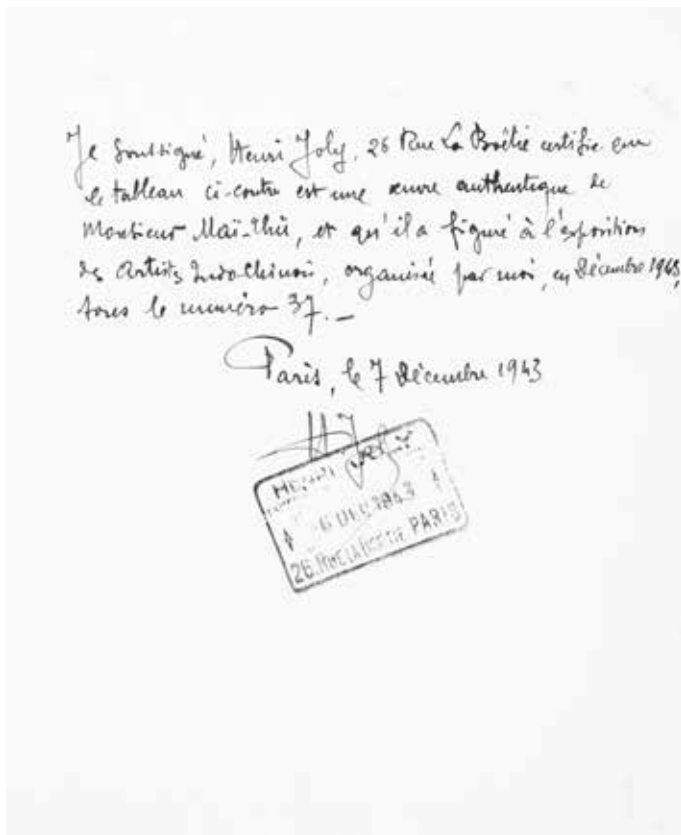 Je soussigné, Henri Joly, 26 Rue La Boëtie certifie que
le tableau ci-contre est une œuvre authentique de
Monsieur Maï-Thû, et qu'il a figuré à l'exposition
des Artistes Indochinois, organisée par moi, en Décembre 1943,
sous le numéro 37.—
Paris, le 7 Décembre 1943
HENRI JOLY
6 DEC 1943
26. RUE LA BOËTIE PARIS